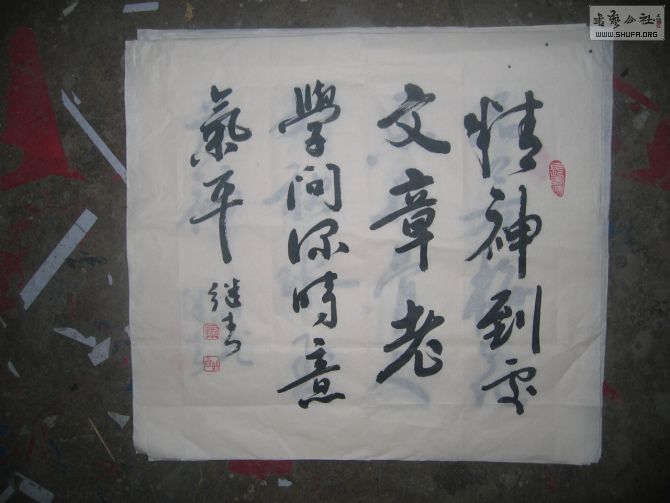 精神到處
文章老
學問深時意
氣平
继书
书艺公社
WWW.SHUFA.ORG